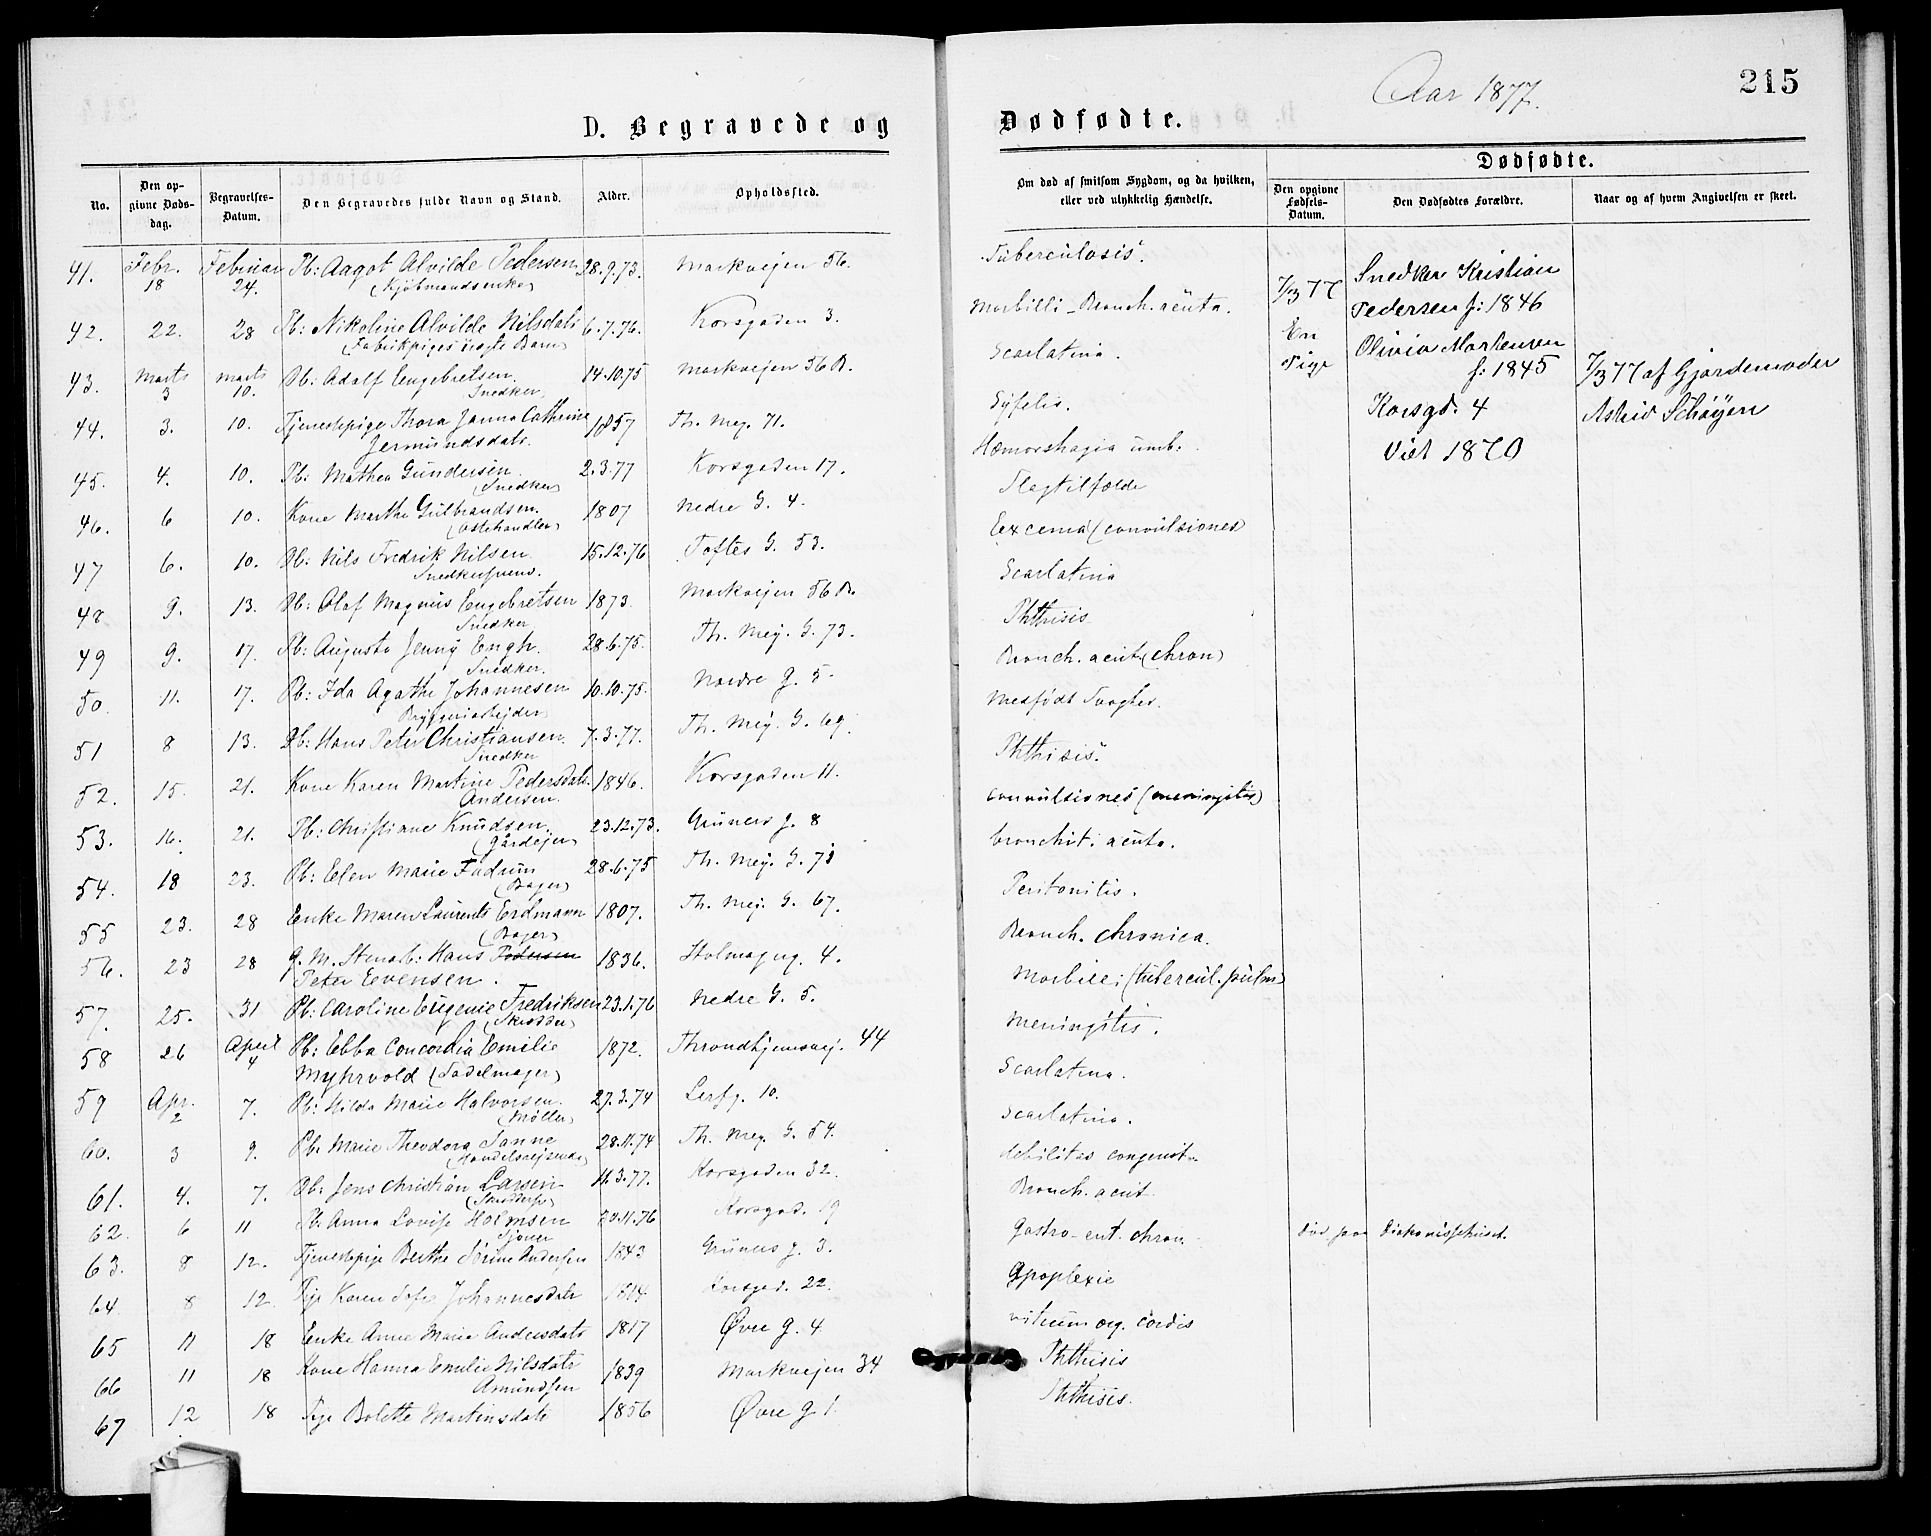 Aar 1877.
215
D. Begravede og Dødfødte.
No.
Den opgivne Dødsdag.
Begravelses-Datum.
Den Begravedes fulde Navn og Stand.
Alder.
Opholdssted.
Om død af smitsom Sygdom, og da hvilken, eller ved ulykkelig Hændelse.
Dødfødte.
Den opgivne Fødsels-Datum.
Den Dødfødtes Forældre.
Naar og af hvem Angivelsen er skeet.
41. Febr. 18 Februar 24. Pb: Aagot Alvilde Pedersen 28.9.73. Markveien 56. Tuberculosis.
(Kjøbmandsenke)
42. 22. 28 Pb: Nikoline Alvilde Nilsdatr 6.7.76. Korsgaden 3. Morbilli - Bronch. acuta.
(Fabrikpiges uægte Barn)
43. Marts 3 Marts 10. Db: Adolf Engebretsen. 14.10.75 Markveien 56 B. Scarlatina.
Snedker
44. 3. 10. Tjenestepige Thora Janna Cathrine 1857 Th. Mey. 71. Syfilis.
Jermundsdatr.
45. 4. 10. Pb: Mathea Gundersen. 2.3.77 Korsgaden 17. Hæmorrhagia umb.
(Snedker)
46. 6 10. Kone Marthe Gulbrandsen. 1807 Nedre G. 4. Slagtilfælde
(Ostehandler)
47 6. 10. Db: Nils Fredrik Nilsen 15.12.76 Toftes G. 53. Excema (convulsiones)
Snedkersvend.
48 9. 13. Db: Olaf Magnus Engebretsen 1873. Markveien 56 B. Scarlatina
Snedker
49 9. 17. Pb: Augusta Jenny Engh. 28.6.75. Th. Mey. G. 73. Phthisis
Snedker.
50 11. 17. Pb: Ida Agathe Johannesen 10.10.75. Nordre g. 5. Bronch. acut (chron)
Bryggeriarbejder
51 8 13. Db: Hans Peter Christiansen. 7.3.77. Th. Mey. G. 69. Medfødt Svaghed.
Snedker
52. 15. 21. Kone Karen Martine Pedersdatr. 1846. Korsgaden 11. Phthisis.
Andersen.
53. 16. 21. Pb: Christiane Knudsen. 23.12.73. Grüners g. 8 convulsiones (meningitis)
(Gårdejer)
54. 18 23. Pb: Elen Marie Fudrum 28.6.75 Th. Mey. G. 71 bronchit. acuta.
(Bager)
55 23. 28 Enke Maren Laurents Erdmann 1807. Th. Mey. G. 67. Peritonitis.
(Bager)
56. 23 28 g. M. Stenarb: Hans Pedersen 1836. Holmsgug. 4. Bronch. chronica.
Peter Evensen.
57. 25. 31 Pb: Caroline Eugenie Fredriksen 23.1.76 Nedre G. 5. Morbilli (tubercul. pulm)
(Skrædder)
58 26 April 4 Pb: Ebba Concordia Emilie 1872. Throndhjemsvej. 44 Meningitis.
Myhrvold (Sadelmager)
59 Apr. 2 7. Pb: Hilda Marie Halvorsen. 27.3.74 10. Scarlatina.
(Møller)
60. 3 9. Pb: Marie Theodora Sanne 28.11.74 Th. Mey. G. 54. Scarlatina.
(Handelsrejsende)
61. 4. 7. Db: Jens Christian Larsen 11.3.77. Korsgaden 32. debilitas congenit.
62. 6 11 Pb. Anna Lovise Holmsen 20.11.76 Korsgad. 19 Bronch. acut.
63. 8 12. Tjenestepige Berthe Sørine Andersen 1843 Grüners g. 3. Gastro-ent. chron. død paa Diakonissehuset.
64. 8 12. Pige Karen Sofie Johannesdatr 1814 Korsgad. 22. Apoplexie
65 11 18 Enke Anne Marie Andersdatr 1817 Øvre g. 4 vitium org. cordis
66 11 18 Kone Hanna Emilie Nilsdatr 1839 Markvejen 34 Phthisis
Amundsen
67 12 18 Pige Bolette Martinsdatr 1856 Øvre g 1. Phthisis.
7/3 77
En Pige
Snedker Kristian
Pedersen f: 1846
Olivia Mortensen
f: 1845
Korsgd. 4
Viet 1870
7/3 77 af Gjordemoder
Astrid Schøyen